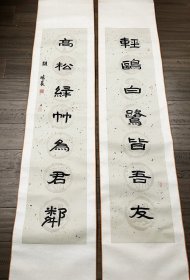 輕鷗白鷺皆吾友
高松綠竹為君鄰